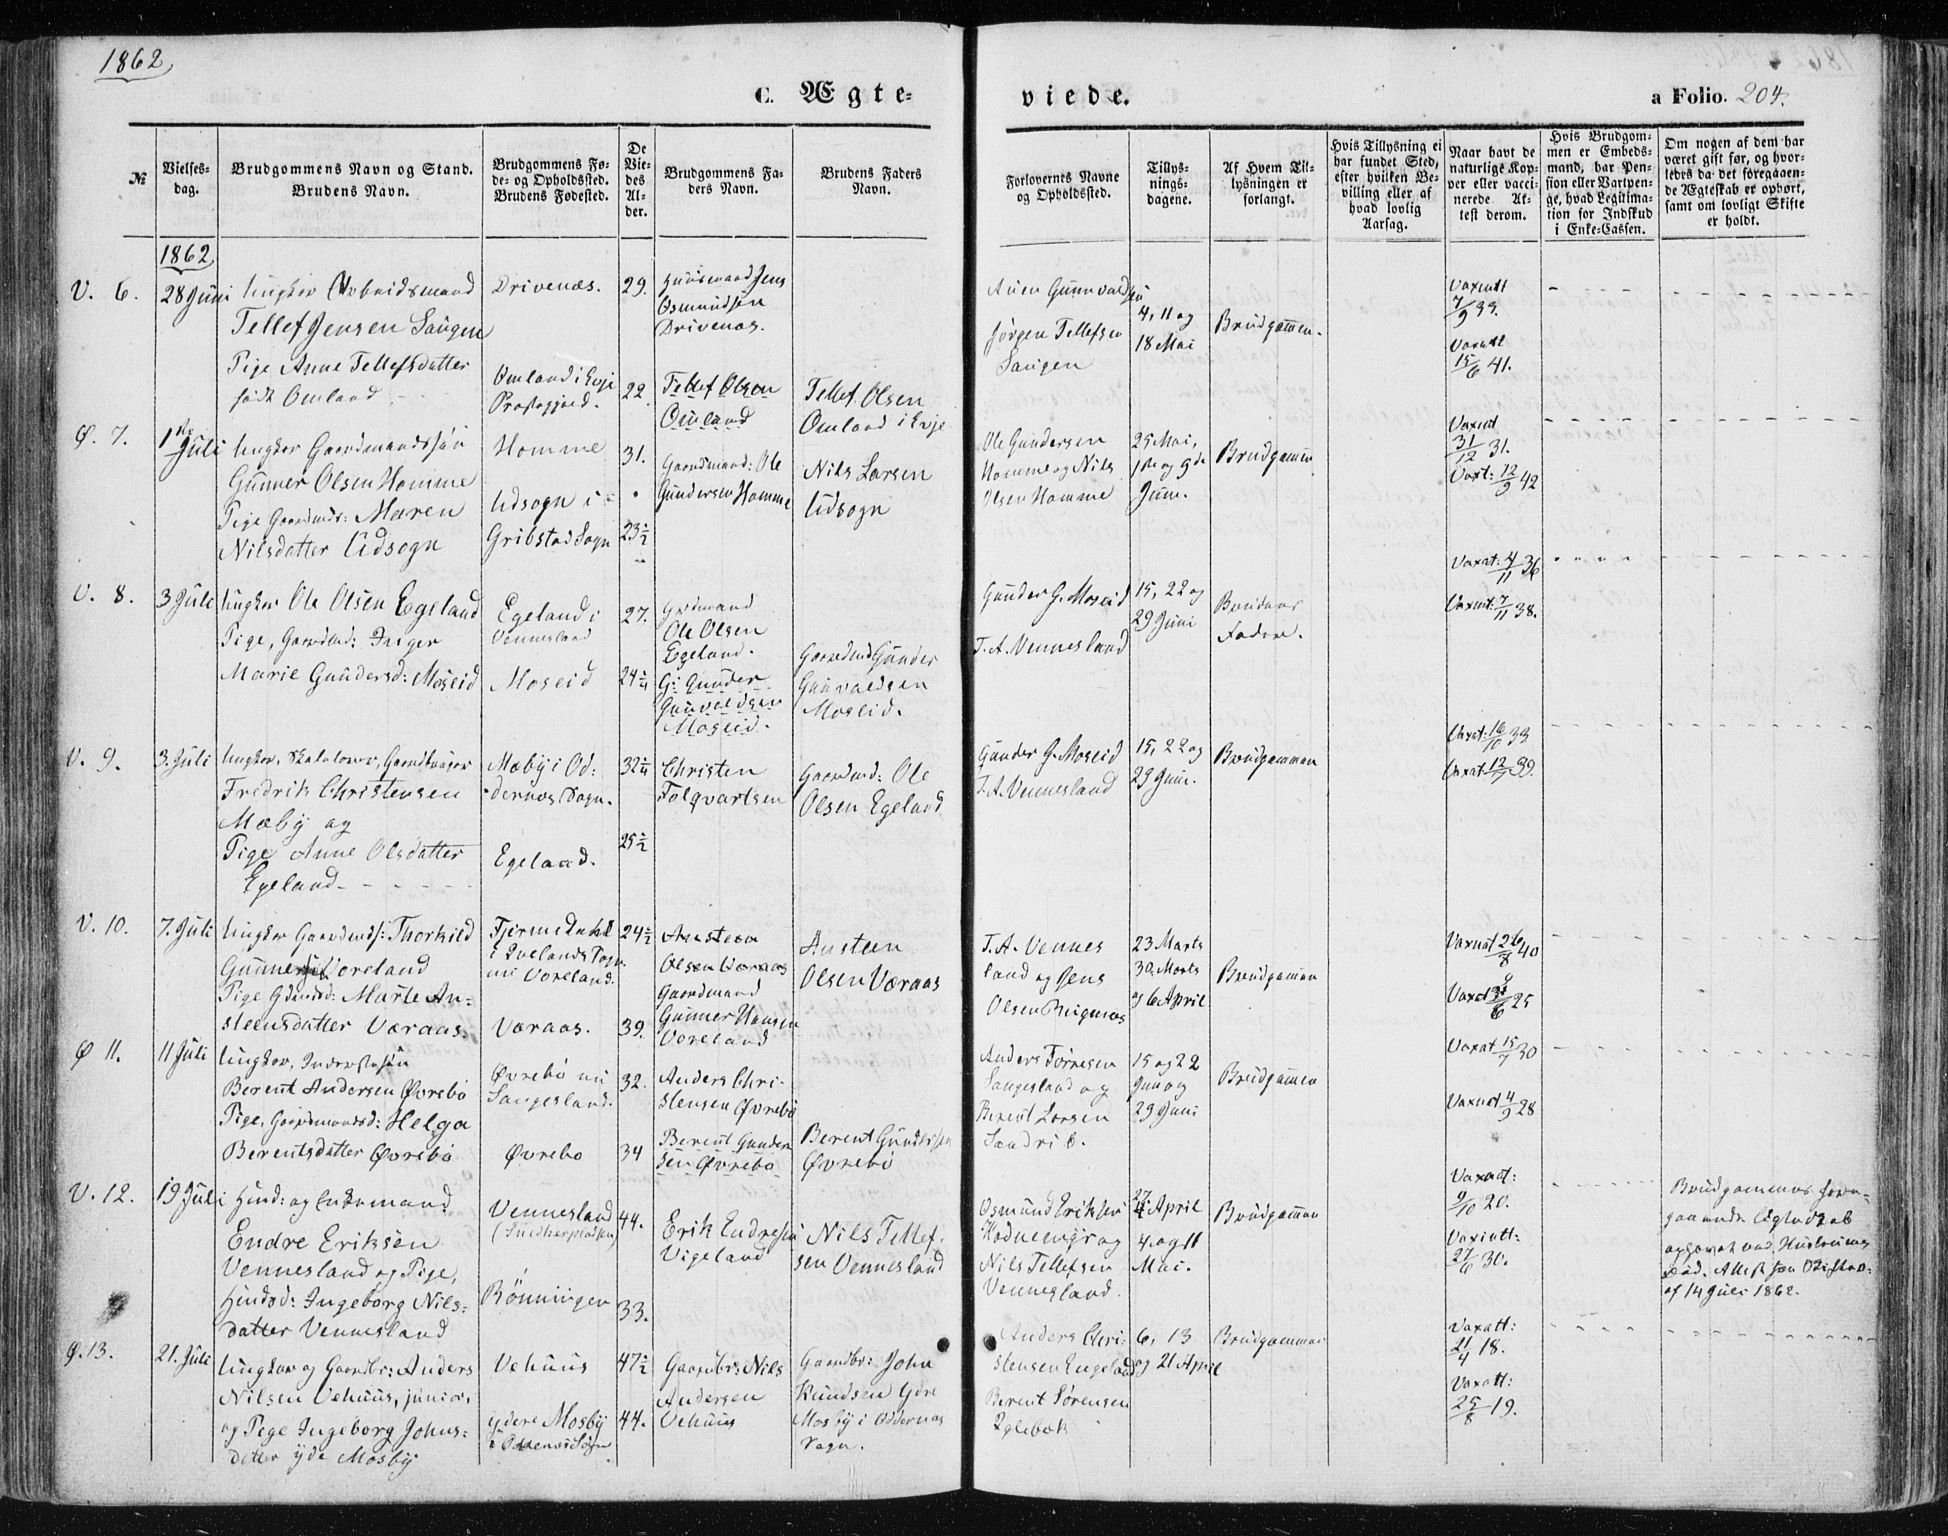 1862,
C. Ægte-
viede.
a Folio. 204.
№
Vielses-
dag.
Brudgommens Navn og Stand.
Brudens Navn.
Brudgommens Fø-
de- og Opholdssted.
Brudens Fødested.
De
Vie-
des
Al-
der.
Brudgommens Fa-
ders Navn.
Brudens Faders
Navn.
Forlovernes Navne
og Opholdssted.
Tillys-
nings-
dagene.
Af Hvem Til-
lysningen er
forlangt.
Hvis Tillysning ei
har fundet Sted,
efter hvilken Be-
villing eller af
hvad lovlig
Aarsag.
Naar havt de
naturlige Kop-
per eller vacci-
nerede At-
test derom.
Hvis Brudgom-
men er Embeds-
mand, har Pen-
sion eller Vartpen-
ge, hvad Legitima-
tion for Indskud
i Enke-Cassen.
Om nogen af dem har
været gift før, og hvor-
ledes da det foregaaen-
de Ægteskab er ophørt,
samt om lovligt Skifte
er holdt.
1862
V. 6. 28 Juni
Ungkar Arbeidsmand
Tellef Jensen Saugen
Pige Anne Tellefsdatter
født Omland
Drivenæs.
Omland i Evje
Præstegjeld.
29.
22.
Huusmand Jens
Osmundsen
Drivenæs.
Tellef Olsen
Omland
Tellef Olsen
Omland i Evje
Auen Gunnvaldsen
Jørgen Tellefsen
Saugen
4, 11 og
18 Mai
Brudgommen.
7/9 39.
15/6 41.
Ø. 7. 1ste Juli
Ungkar Gaardmandssøn
Gunner Olsen Homme
Pige Gaardmds: Maren
Nilsdatter Udsogn
Homme
Udsogn i
Gribstad Sogn
31.
23½
Gaardmand: Ole
Gundersen Homme
Nils Larsen
Udsogn
Ole Gundersen
Homme og Nils
Olsen Homme
25 Mai,
1ste og 9de
Juni.
Brudgommen
31/12 31.
12/9 42
V. 8. 3 Juli
Ungkar Ole Olsen Egeland
Pige, Gaardmd: Inger
Marie Gundersd: Moseid
Egeland i
Vennesland
Moseid
27.
24¼
Grdmand
Ole Olsen
Egeland.
G: Gunder
Gunvaldsen
Moseid.
Gaardmd Gunder
Gunvaldsen
Moseid.
Gunder G. Moseid
T. A. Vennesland
15, 22 og
29 Juni
Brudens
Fader.
Vaxat: 4/11 36
Vaxat: 7/11 38.
V. 9. 3. Juli
Fredrik Christensen
Mæby og
Pige Anne Olsdatter
Egeland
Mæby i Od:
dernes Sogn.
Egeland.
32¼
25½
Christen
Folqvartsen
Gaardmd: Ole
Olsen Egeland
Gunder G. Moseid
T. A. Vennesland
15, 22 og
29 Juni.
Brudgommen
Vaxat: 16/10 33
Vaxat 12/7 39.
V. 10. 7. Juli
Ungkar Gaardmds: Thorkild
Gunnersen Voreland
Pige Gdmdsd: Marte An-
steensdatter Væraas.
Fjermedahl
i Ivelands Sogn
nu Voreland.
Væraas.
24½
39.
Ansteen
Olsen Væraas
Gaardmand
Gunner Hansen
Voreland
Ansteen
Olsen Væraas
T. A. Vennes
land og Jens
Olsen Rugenæs
23 Marts
30. Marts
og 6 April
Brudgommen
Vaxat 26/8 40
Ø 11. 11 Juli
Berent Andersen Øvrebø
Pige, Gaardmandsd: Helga
Berentsdatter Øvrebø
Øvrebø nu
Sangesland.
Øvrebø
32.
34
Anders Chri-
stensen Øvrebø
Berent Gunder
sen Øvrebø
Berent Gundersen
Øvrebø
Anders Tørresen
Sangesland og
Berent Larsen
15 og 22
Juni og
29 Juni
Brudgommen
Vaxat 15/7 30
Vaxat 4/9 28
V. 12. 19 Juli
Huusmd: og Enkemand
Endre Eriksen
Vennesland og Pige,
Huusd: Ingeborg Nils-
datter Vennesland
Vennesland
Rönningen
44.
33.
Erik Endresen
Vigeland
Nils Tellef-
sen Vennesland
Osmund Eriksen
Nils Tellefsen
Vennesland.
27 April
4. og 11
Mai.
Brudgommen
Vaxat:
9/10 20.
Vaxatt:
27/6 30.
Brudgommens fore-
gaaende Ægteskab
ophævet ved Hustruens
Død. Attest fra Skifter.
af 14 Juli 1862.
Ø. 13. 21. Juli
Ungkar og Gaardbr: Anders
Nilsen Vehuus, junior,
og Pige Ingeborg Johns-
datter ydre Mosby
Vehuus
ydre Mosby
i Oddernæs Sogn
47½
44.
Gaardbr: Nils
Andersen
Vehuus
Gaardbr: John
Knudsen ydre
Mosby i Oddernæs
Sogn.
Anders Chri-
stensen Engeland
Berent Sørensen
Eglebæk
6, 13
og 21 April
Brudgommen
Vaxatt:
21/4 18.
Vaxatt:
25/8 19.